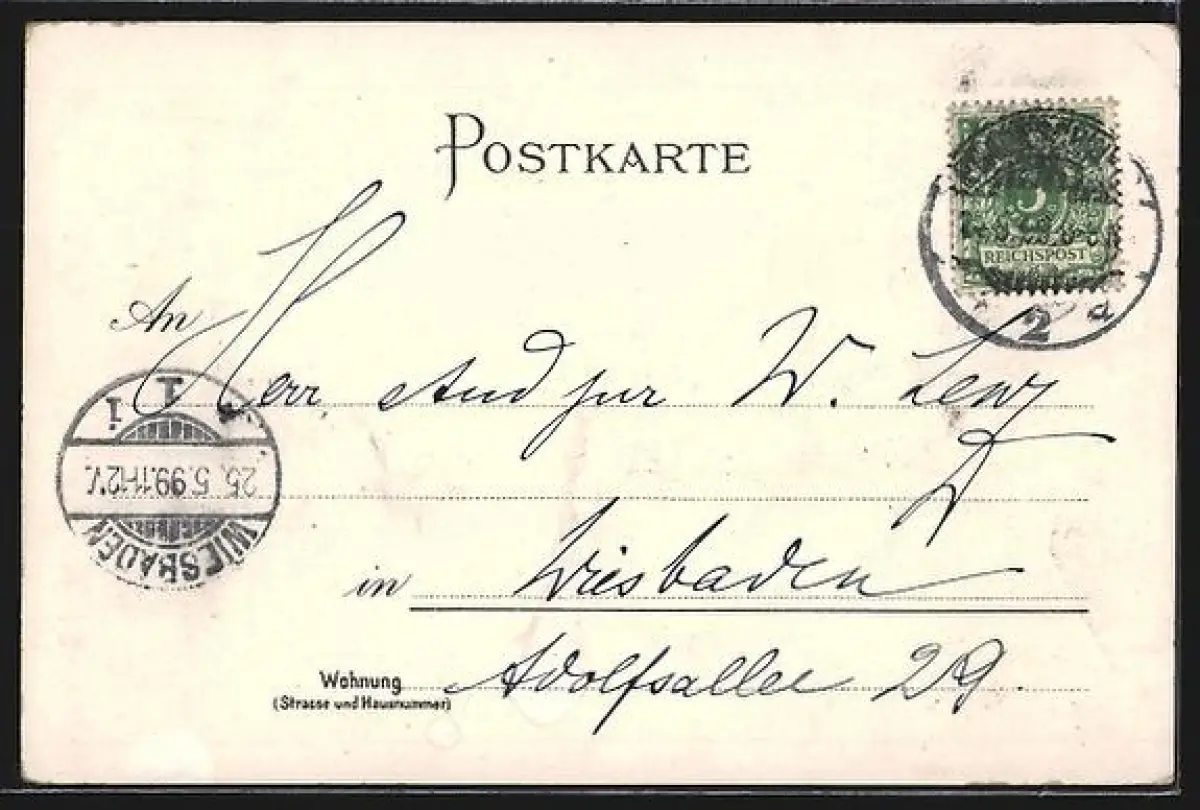 POSTKARTE
5
REICHSPOST
2 d
An
Herr stud jur W. Lenz
in Wiesbaden
Wohnung Adolfsallee 29.
(Strasse und Hausnummer)
1
1
25. 5. 99. 11-12 V.
WIESBADEN